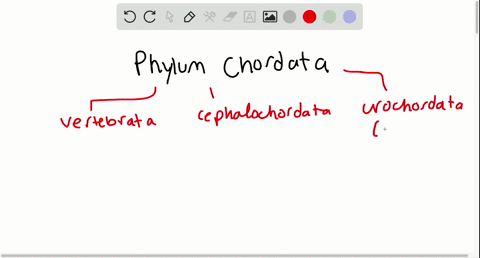 Phylum Chordata
vertebrata cephalochordata urochordata
(